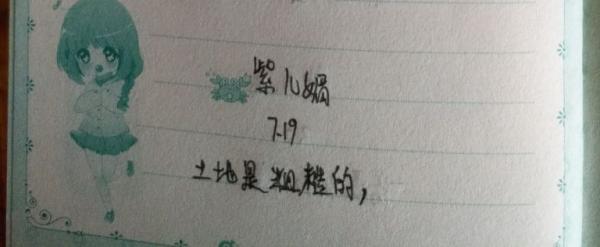 紫儿媚
7.19
土地是粗糙的，